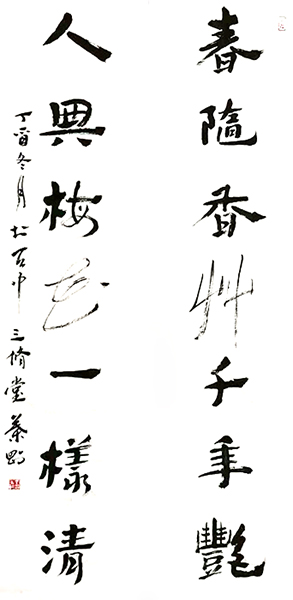 春隨香艸千年艷
人與梅花一樣清
丁酉冬月於中三脩堂